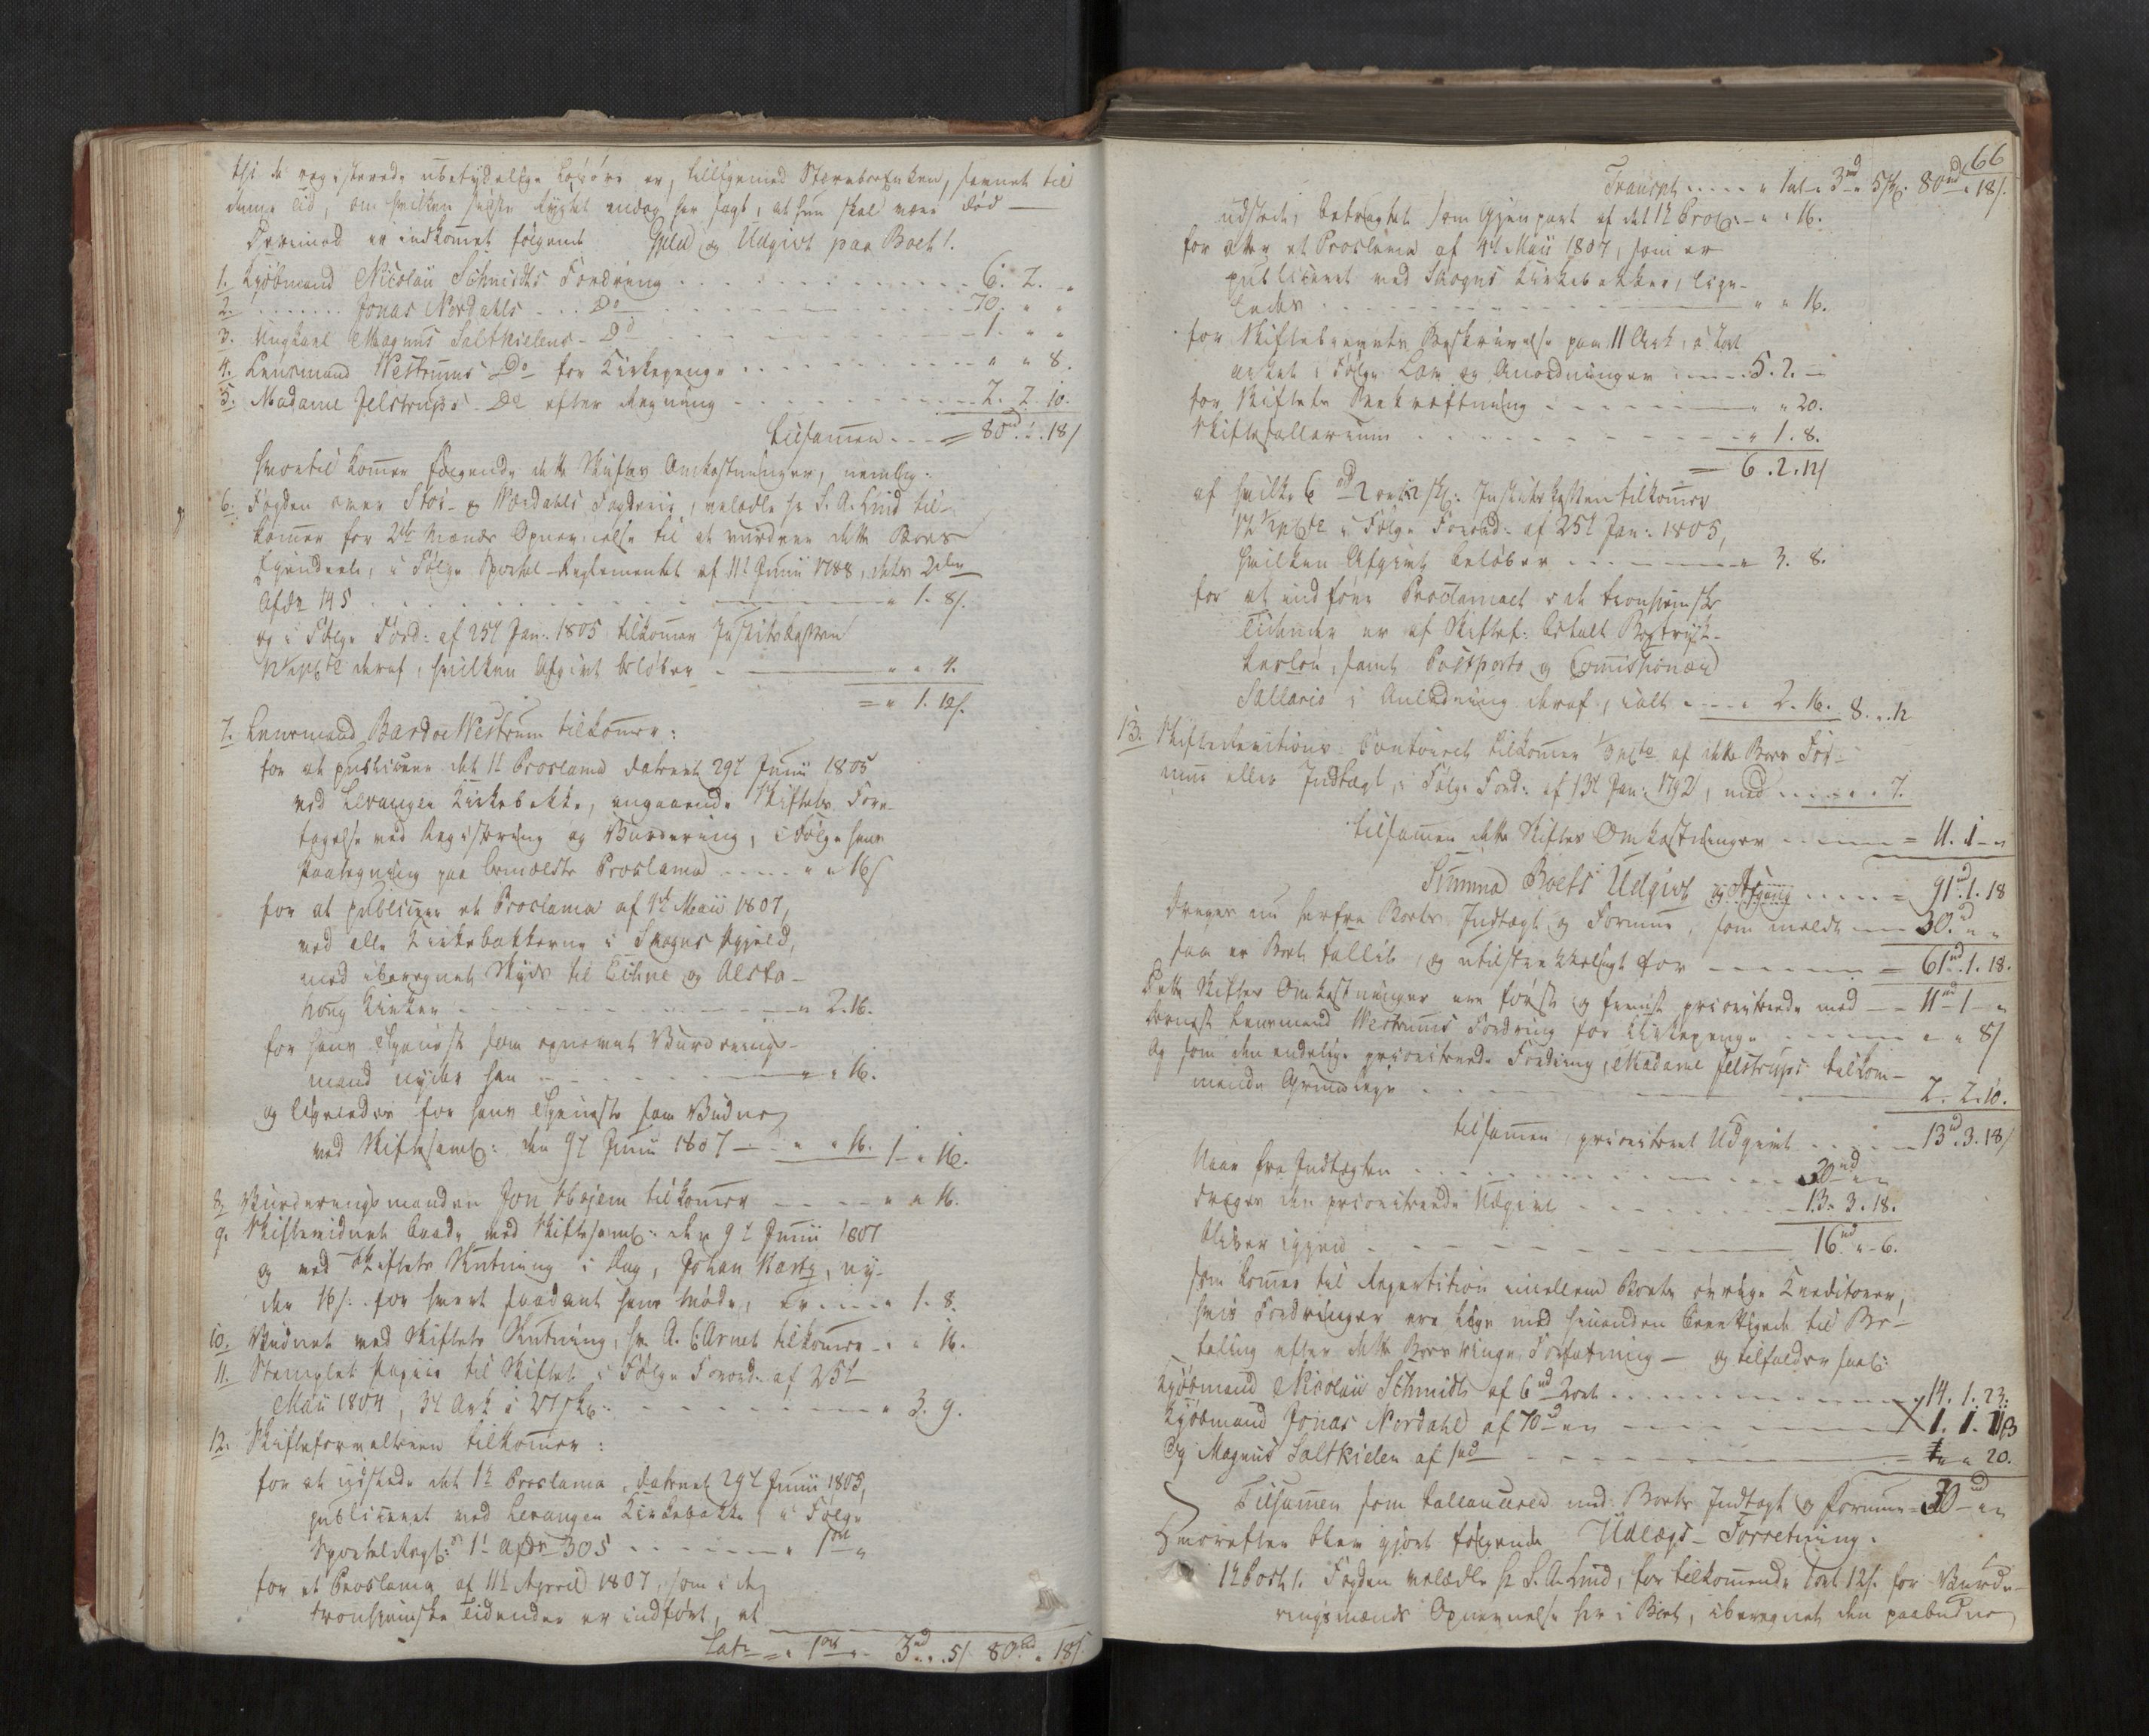 thi de registerede ubetydelige Løsøre er, tilligemed Stervboeenken, fravendt til
denne Tid, om hvilken sidste Rygtet endog har sagt, at hun skal være død —
Derimod er indkomet følgende Gjæld og Udgivt paa Boet /.
1. Kjøbmand Nicolaii Schmidts Fordring . . . 6. 2. „
2. . . . . . . Jonas Nordahls . . . Do . . . 70. „ „
3. Magnus Saltkielens - Do . . . 1. „ „
4. Lensmand Westrums Do for Kirkepenge . . . „ „ 8.
5. Madame Jelstrups - Do efter Regning . . . 2. 2. 10.
tilsamen . . . = 80rd. „ . 18/
hvortil komer følgende dette Skiftes Omkostninger, nemlig:
6. Fogden over Stør- og Værdahls Fogderie, velædle hr L. A. Lind til-
komer for 2de Mænds Opnævnelse til at vurdere dette Boes
Ejendeele, i Følge Sportel-Reglementet af 11t Junii 1788, dets 2den
Afdr 145 . . . „ 1. 8/.
og i Følge Ford: af 25t Jan: 1805 tilkomer Justitskassen
12 1/2 pCte deraf, hvilken Afgivt beløber . . . „ „ 4.
= „ 1. 12/.
7. Lensmand Bardoe Westrum tilkomer:
for at publicere det 1t Proclama dateret 29t Junii 1805
ved Levanger Kirkebakke, angaaende Skiftets Fore-
tagelse med Registrering og Vurdering, i Følge hans
Paategning paa bemeldte Proclama . . . „ „ 16/
for at publicere et Proclama af 4t Maii 1807,
ved alle Kirkebakkerne i Skogns Præstegjeld,
med iberegnet Skyds til Eithne og Alsta-
houg Kirker . . . „ 2. 16.
for hans Tjeneste som opnævnt Vurderings-
mand nyder han . . . „ „ 16.
og ligeledes for hans Tjeneste som Vidne
ved Skiftesaml: den 9t Junii 1807 — „ „ 16. 1 „ 16.
8. Vurderingsmanden Jon Hojem tilkomer . . . „ „ 16.
9. Skiftevidnet baade ved Skiftesaml: den 9t Junii 1807
og ved Skiftets Slutning i Dag, Johan Kartz, ny-
der 16/: for hvert saadant hans Møde, er . . . „ 1. 8.
10. Vidnet ved Skiftets Slutning, hr A. C: Arnet tilkomer . „ „ 16.
11. Stemplet Papiir til Skiftet i Følge Forord: af 25t
Maii 1804, 3t Ark á 27 sk: . . . „ 3. 9.
12. Skifteforvalteren tilkomer:
for at udstæde det 1t Proclama, dateret 29t Junii 1805,
publiceret ved Levanger Kirkebakke, i Følge
SportelRegl: 1t Afdr 305 . . . „ 1ort „
for et Proclama af 11t April 1807, som i de
tronhjemske Tidender er indført, et
Lat: = „ 1ort „ 3rd „. 5/ 80rd. „ 18/
66
Transpt . . . „ 1ort „ 3rd „ 5 sk: 80rd „ 18/.
udstæde, betragtet som Gjenpart af det 1t Procl: „ „ 16.
for atter et Proclama af 4t Maii 1807, som er
publiceret ved Skogns Kirkebakker, lige-
ledes . . . „ „ 16.
for Skiftebrevets Beskrivelse paa 11 Ark, á 2ort
arket i Følge Lov og Anordninger . . . 5. 2. „
for Skiftets Bekræftning . . . „ „ 20.
Skiftesallarium . . . „ 1. 8.
= 6. 2. 12/
af hvilke 6 rd 2 ort 12 sk: Justitskassen tilkomer
12 1/2 pCte i Følge Forord: af 25t Jan: 1805,
hvilken Afgivt beløber . . . „ 3. 8.
for at indføre Proclamaet i de tronhjemske
Tidender er af Skiftef: betalt Bogtryk-
kerløn, samt Postporto og Comissionær
Sallario i Anledning deraf, ialt . . . „ 2. 16. 8. „. 12
13. Skifterevisions Contoiret tilkomer 1/3 pCte af dette Boes For-
mue eller Indtægt, i Følge Ford: af 13t Jan: 1792, med . . . „ 7.
tilsamen dette Skiftes Omkostninger . . . = 11. 1 „
Summa Boets Udgivt og Afgang . . . = 91rd. 1. 18
drages nu herfra Boets Indtægt og Formue, som meldt — 30. „ „
saa er Boet fallit, og utilstrækkeligt for . . . = 61rd. 1. 18.
Dette Skiftes Omkostninger ere først og fremst prioriterede med — „ 11rd 1 „
dernest Lensmand Westrums Fordring for Kirkepenge . . . „ „ 8/
og som den endelige prioriterede Fordring, Madame Jelstrups tilkom-
mende . . . 2. 2. 10.
tilsamen prioriteret Udgivt . . . 13rd. 3. 18/
Naar fra Indtægten . . . 30rd „ „
drages den prioriterede Udgivt . . . 13. 3. 18.
bliver igjen . . . 16rd „ 6.
som komer til Repartition imellem Boets øvrige Creditorer,
hvis Fordringer ere lige med hinanden berettigede til Be-
taling efter dette Boes ringe Forfatning — og tilfalder saal:
Kjøbmand Nicolaii Schmidt af 6rd 2ort . . . 14. 1. 23.
Kjøbmand Jonas Nordahl af 70rd „ „ . . . 1. 1. 11
Og Magnus Saltkielen af 1rd . . . „ „ 20.
Tilsamen som ballancerer med Boets Indtægt og Formue = 30rd „ „
Hvorefter blev gjort følgende Udlægs-Forretning.
1t Post /. Fogden velædle hr L. A. Lind, for tilkomende 1ort 12/. for Vurde-
ringsmænds Opnævnelse her i Boet, iberegnet den paabudne